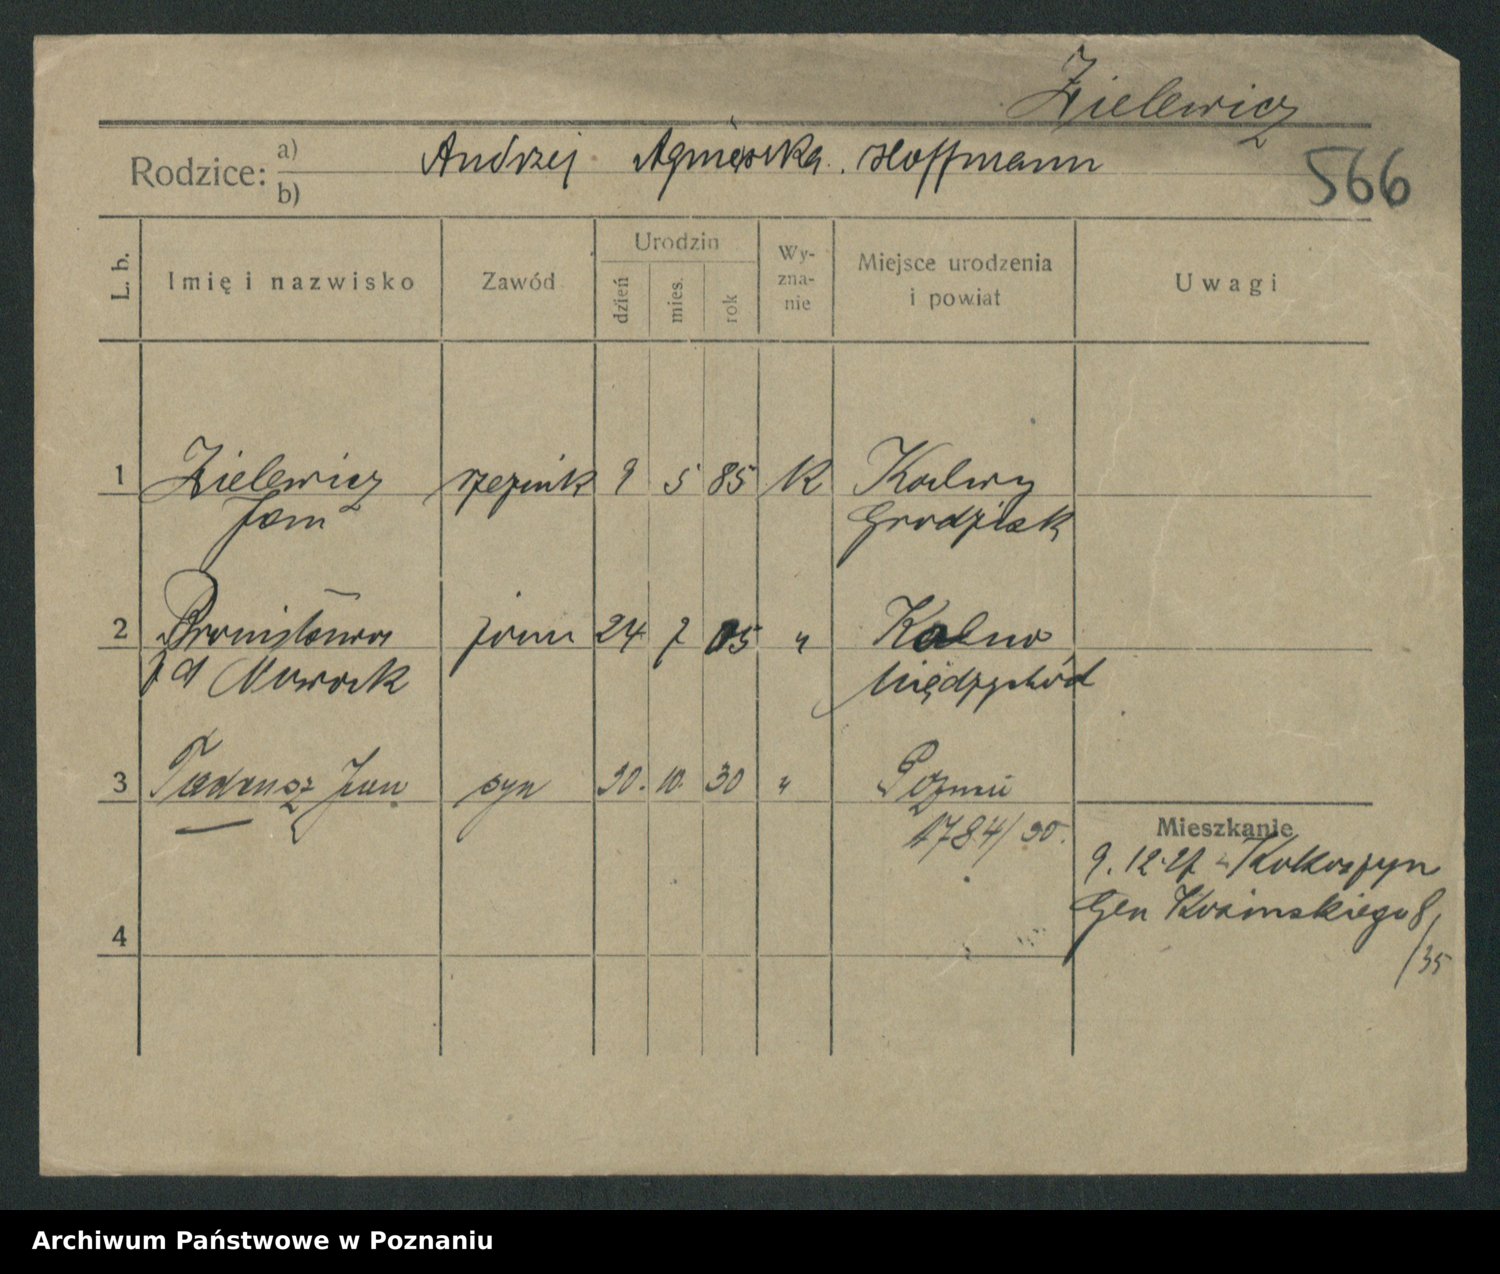 Zielewicz
Rodzice: a) b) Andrzej Agnieszka Hoffmann
566
L. b. Imię i nazwisko Zawód Urodzin dzień mies. rok Wy-zna-nie Miejsce urodzenia i powiat Uwagi
1 Zielewicz rzeźnik 9 5 85 K
Jan Grodzisk
2 Bronisława żona 24 7 05 "
z d Nowack Międzychód
3 Tadeusz Jan syn 30. 10. 30 " Poznań
1784/30.
Mieszkanie
9. 12. 27 -
Gen Kosinskiego 8
/35
4
Archiwum Państwowe w Poznaniu